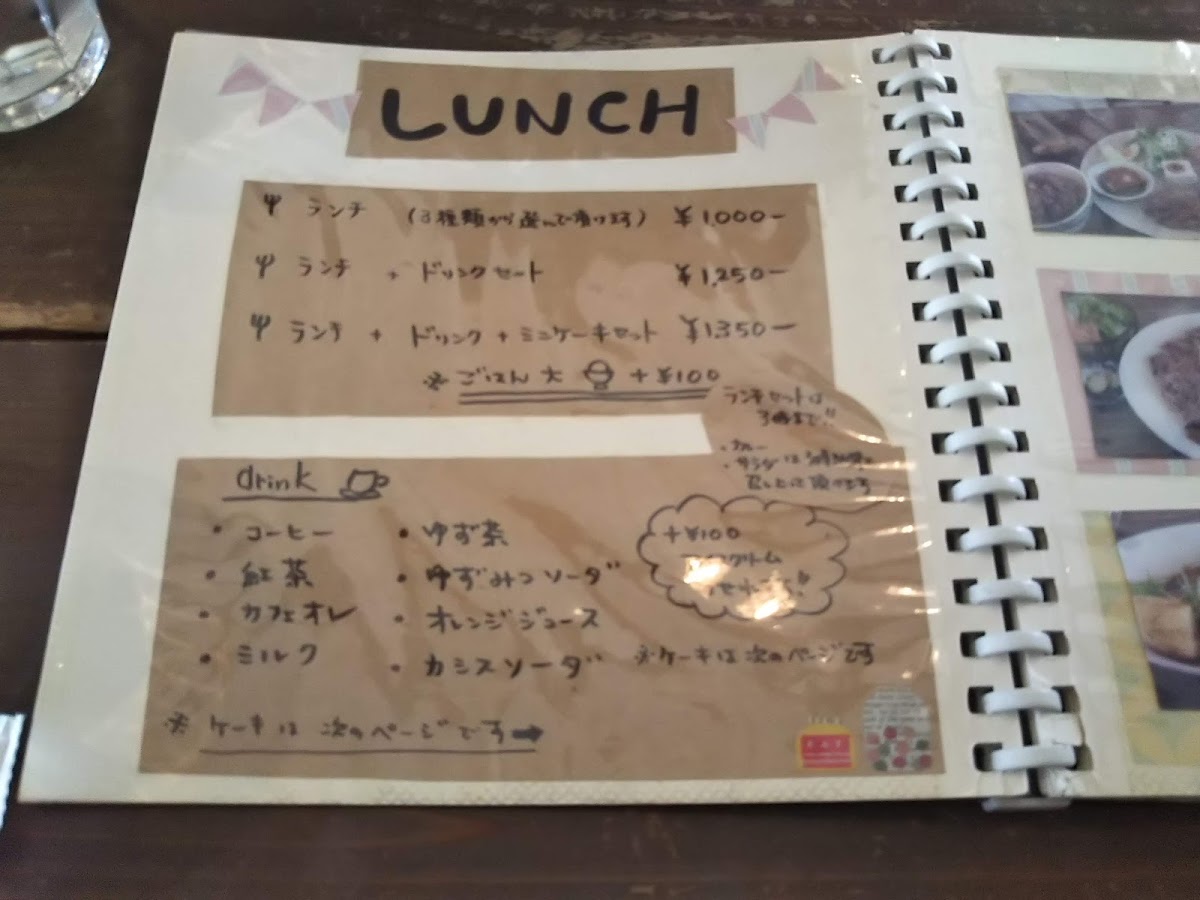 LUNCH
ランチ (3種類から選んで頂けます) ¥1,000-
ランチ + ドリンクセット ¥1,250-
ランチ + ドリンク + ミニケーキセット ¥1,350-
※ごはん 大 +¥100
ランチセットは
3時まで!!
・カレー
・サラダは
召し上って頂けます
drink
・コーヒー
・紅茶
・カフェオレ
・ミルク
・ゆず茶
・ゆずみつソーダ
・オレンジジュース
・カシスソーダ
+¥100
アイスクリーム
※ケーキは次のページです
※ケーキは 次のページです➡